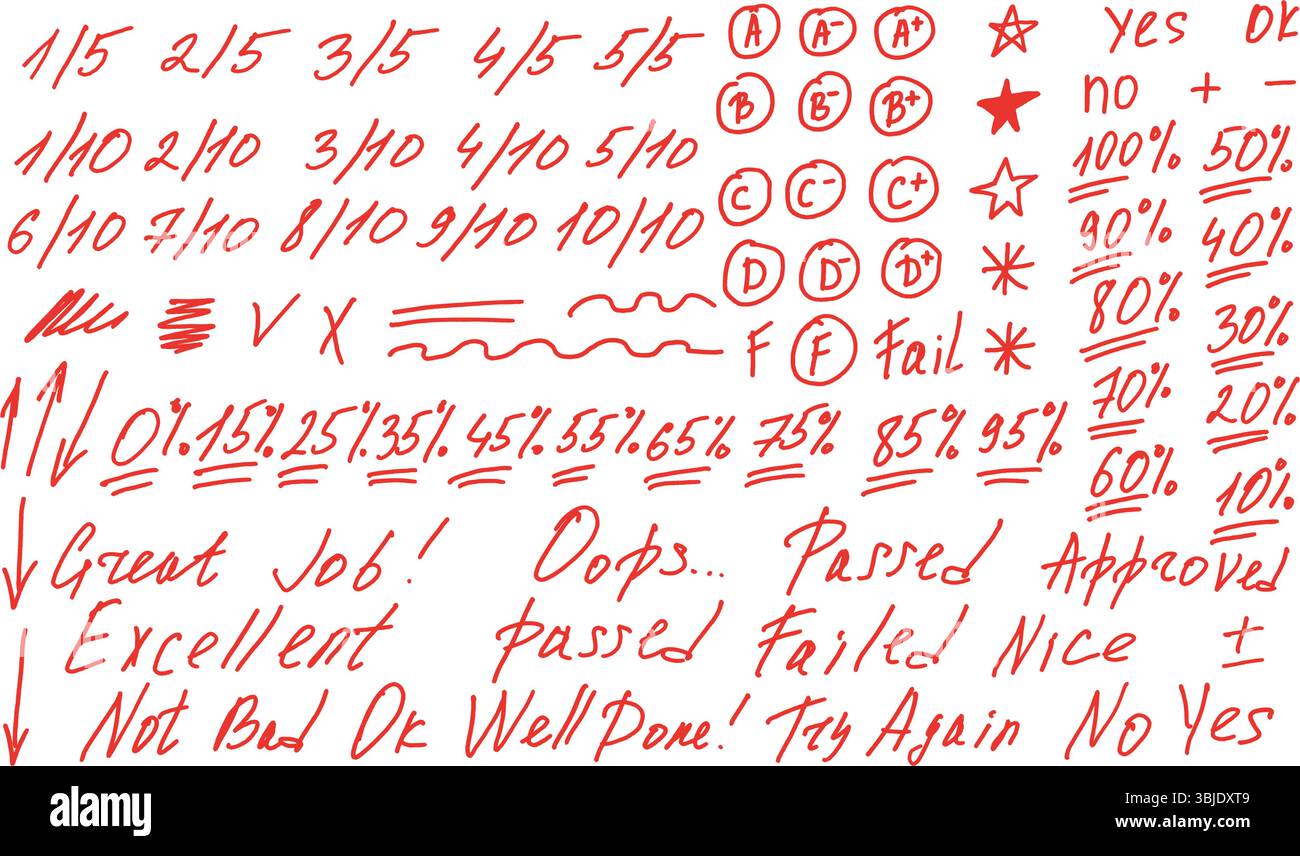 1/5 2/5 3/5 4/5 5/5 A A- A+ Yes Ok
B B- B+ no + -
1/10 2/10 3/10 4/10 5/10 100% 50%
C C- C+
6/10 7/10 8/10 9/10 10/10 90% 40%
D D- D+
V X 80% 30%
F F Fail
70% 20%
0% 15% 25% 35% 45% 55% 65% 75% 85% 95%
60% 10%
Great Job! Oops... Passed Approved
Excellent passed Failed Nice ±
Not Bad Ok Well Done! Try Again No Yes
alamy
Image ID: 3BJDXT9
www.alamy.com